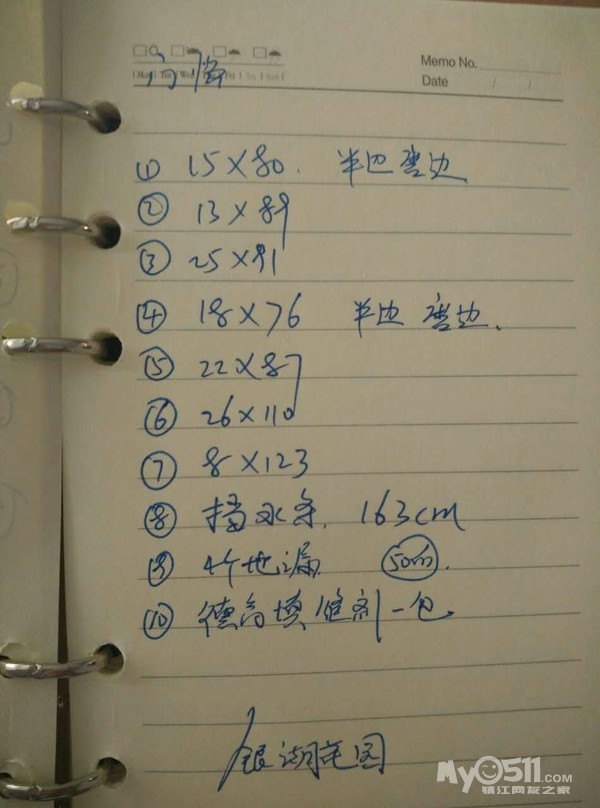 Memo No.
Date / /
① 15×80. 半边磨边
② 13×89
③ 25×91
④ 18×76 半边 磨边.
⑤ 22×87
⑥ 26×110
⑦ 8×123
⑧ 挡水条. 163cm
⑨ 4个地漏 50m.
⑩ 德高填缝剂一包.
银湖花园
My0511.com
镇江网友之家